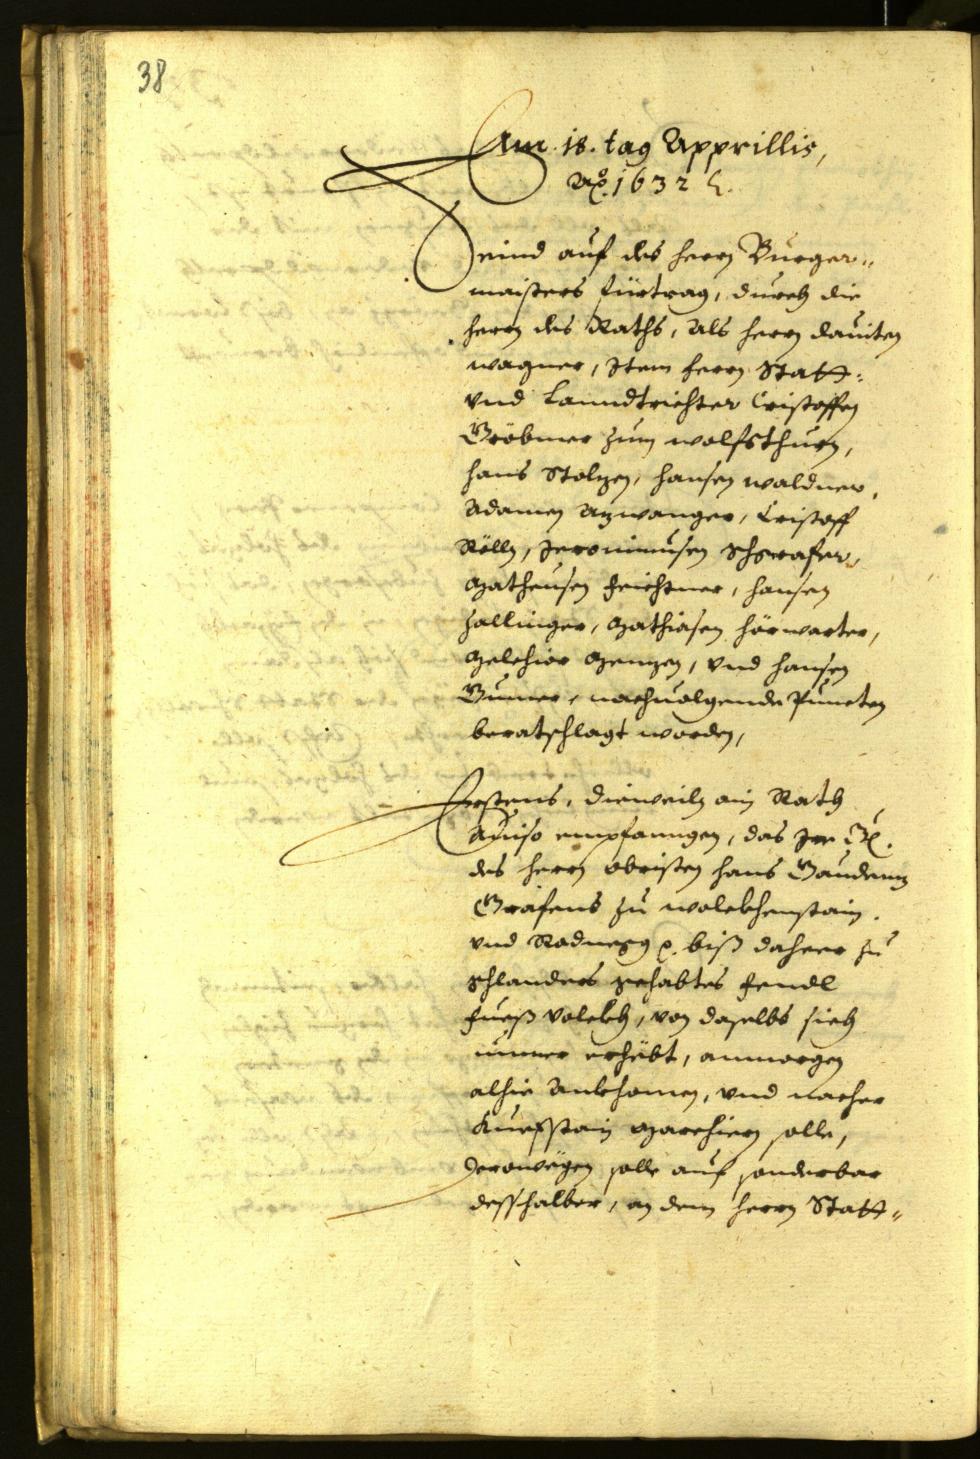 38
Am .18. tag Apprillis,
Ao. 1632
Seind auf des herrn Burger„
maisters fürtrag, durch die
herrn des Raths, als herrn Dauiten
Wagner, Item herrn Statt-
vnd Lanndtrichter Cristoffen
Gröbmer zum Wolfsthurn,
Hans Stolzen, Hansen Waldner,
Adamen Azwanger, Cristoff
Röll, Jeronimusen Schgrafer,
Matheusen Feichtner, Hansen
Zallinger, Mathiasen Hörwarter,
Melchior Menzen, vnd Hansen
nachuolgende Puncten
beratschlagt worden,
Erstens, dieweiln ain Rath
Auiso empfanngen, das Jr
des herrn Obristen Hans Gaudenz
Grafens zu Wolckhenstain.
vnd Rodnegg p. biß daheer zu
Schlanders gehabtes Fendl
Fueß Volckh, von daselbs sich
nunner erhebt, anmorgen
alhie Ankhomen, vnd nacher
Kuefstain Marchiern solle,
Derowegen solle auf sonderbar
desshalber, an dem herrn Statt„